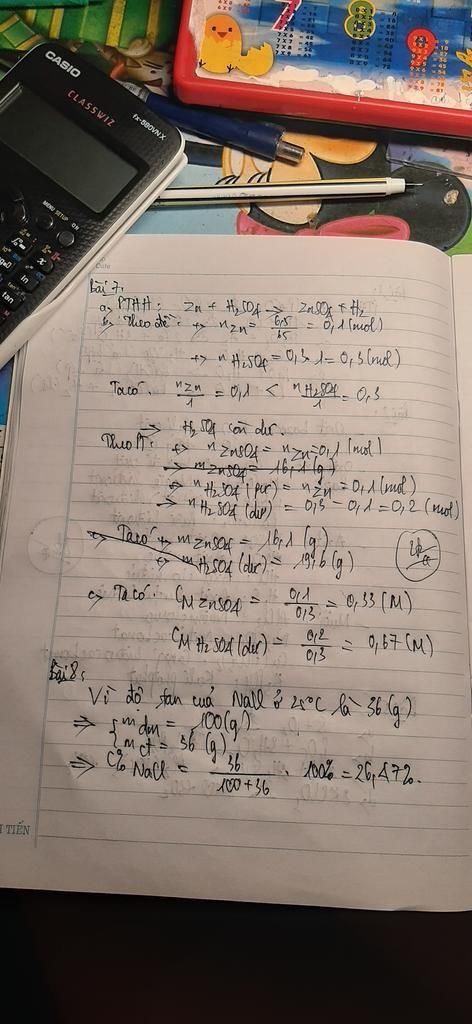 CASIO
CLASSWIZ
fx-580VNX
MENU SETUP
ON
Date
Bài 7:
a, PTHH: Zn + H2SO4 → ZnSO4 + H2
b, Theo đề: +, nZn = 6,5/65 = 0,1 (mol)
+, nH2SO4 = 0,3.1 = 0,3 (mol)
Ta có: nZn/1 = 0,1 < nH2SO4/1 = 0,3
→ H2SO4 còn dư.
Theo PT: +, nZnSO4 = nZn = 0,1 (mol)
→ mZnSO4 = 16,1 (g)
→ nH2SO4 (pư) = nZn = 0,1 (mol)
→ nH2SO4 (dư) = 0,3 - 0,1 = 0,2 (mol)
Ta có +, mZnSO4 = 16,1 (g)
+, mH2SO4 (dư) = 19,6 (g)
c, Ta có: CM ZnSO4 = 0,1/0,3 = 0,33 (M)
CM H2SO4 (dư) = 0,2/0,3 = 0,67 (M)
Bài 8:
Vì độ tan của NaCl ở 25°C là 36 (g)
⇒ { mdm = 100 (g)
mct = 36 (g)
⇒ C% NaCl = 36/100+36 . 100% = 26,47%.
TIẾN